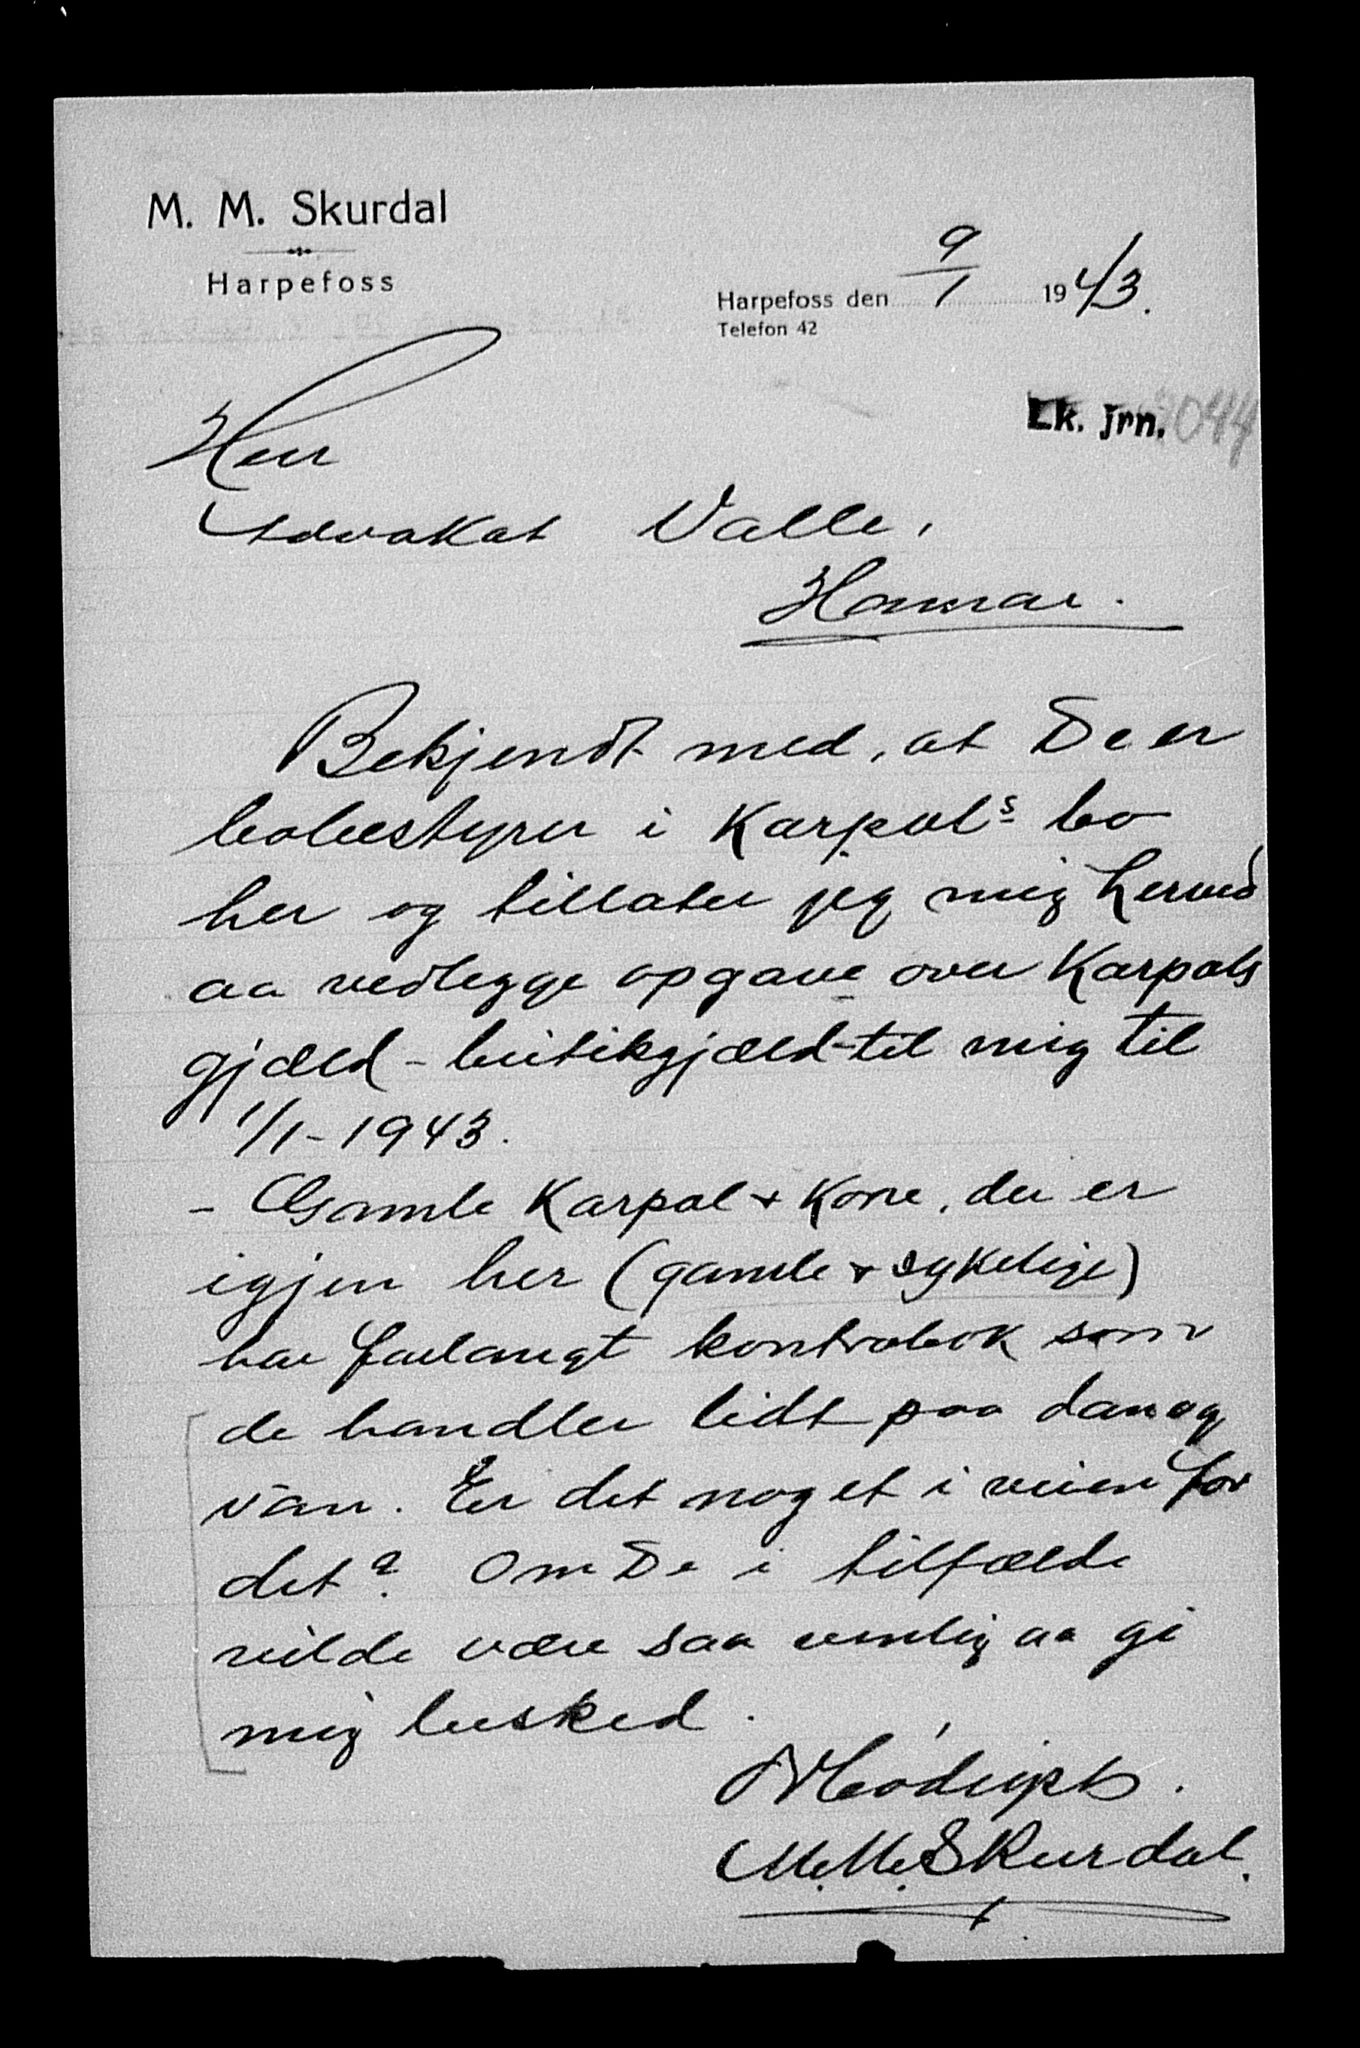 M. M. Skurdal
Harpefoss
Harpefoss den 9/1 1943.
Telefon 42
Lk. Jrn. 044
Herr
Advokat Valle,
Hamar.
Bekjendt med, at De er
bobestyrer i Karpol's bo
her og tillater jeg mig herved
aa vedlegge opgave over Karpols
gjæld - butikgjæld - til mig til
1/1-1943.
- Gamle Karpol + Kone, der er
igjen her (gamle + sykelige)
har forlangt kontrabok som
de handler lidt paa dan og
van. Er det noget i veien for
det? Om De i tilfælde
vilde være saa venlig aa gi
mig besked.
Ærbødigst.
M.M. Skurdal.